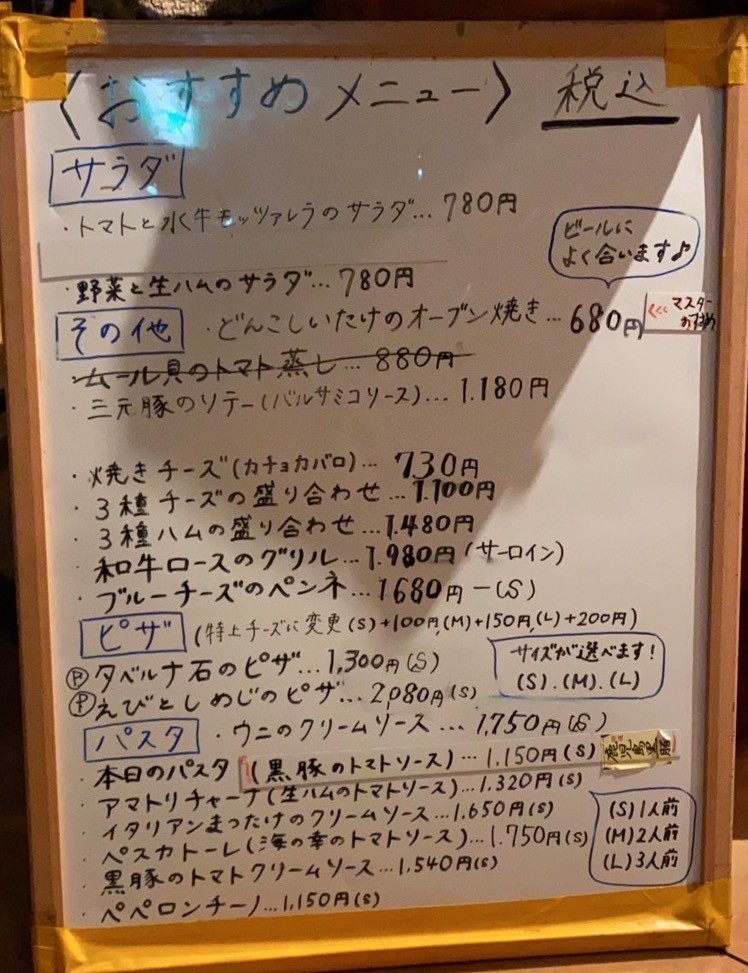 〈おすすめメニュー〉 税込
サラダ
・トマトと水牛モッツァレラのサラダ…780円
ビールに
よく合います♪
・野菜と生ハムのサラダ…780円
その他 ・どんこしいたけのオーブン焼き…680円
<<< マスター
おすすめ
・ムール貝のトマト蒸し…880円
・三元豚のソテー(バルサミコソース)…1.180円
・焼きチーズ(カチョカバロ)…730円
・3種チーズの盛り合わせ…1.100円
・3種ハムの盛り合わせ…1.480円
・和牛ロースのグリル…1.980円(サーロイン)
・ブルーチーズのペンネ…1680円-(S)
ピザ (特上チーズに変更(S)+100円,(M)+150円,(L)+200円)
Ⓟタベルナ石のピザ…1,300円(S)
サイズが選べます!
(S).(M).(L)
Ⓟえびとしめじのピザ…2,080円(S)
パスタ ・ウニのクリームソース…1,750円(S)
・本日のパスタ(黒豚のトマトソース)…1.150円(S) 鹿児島黒豚
・アマトリチャーナ(生ハムのトマトソース)…1.320円(S)
・イタリアンまつたけのクリームソース…1.650円(S)
・ペスカトーレ(海の幸のトマトソース)…1.750円(S)
・黒豚のトマトクリームソース…1,540円(S)
・ペペロンチーノ…1.150円(S)
(S)1人前
(M)2人前
(L)3人前